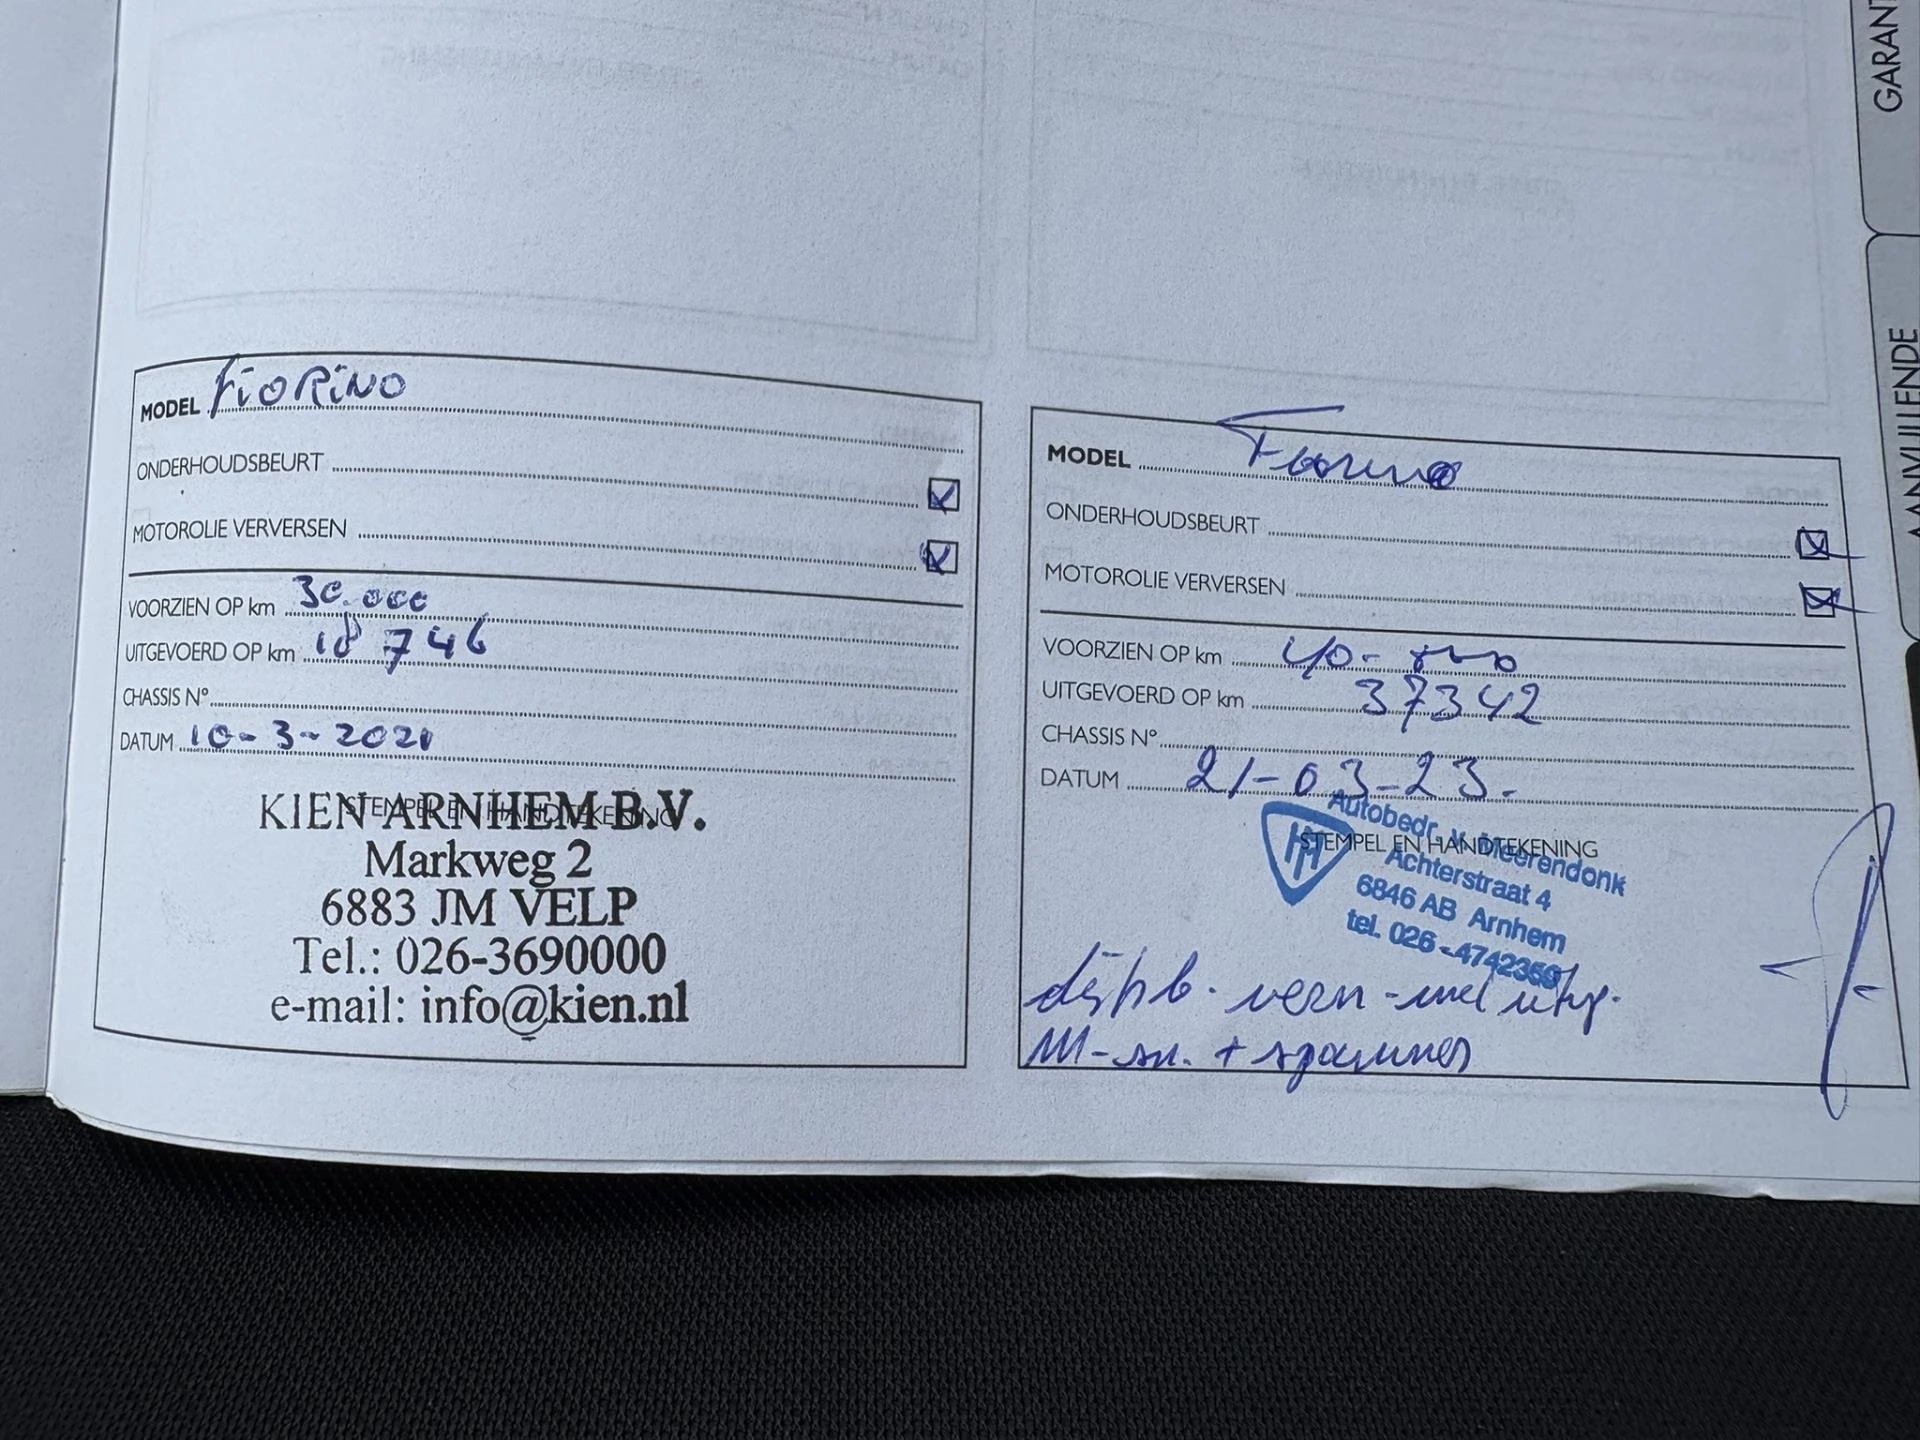 GARANT
AANVULLENDE
MODEL FiORiNO
ONDERHOUDSBEURT
MOTOROLIE VERVERSEN
VOORZIEN OP km 30.000
UITGEVOERD OP km 18 746
CHASSIS N°
DATUM 10-3-2021
STEMPEL EN HANDTEKENING
KIEN ARNHEM B.V.
Markweg 2
6883 JM VELP
Tel.: 026-3690000
e-mail: info@kien.nl
MODEL Fiorino
ONDERHOUDSBEURT
MOTOROLIE VERVERSEN
VOORZIEN OP km 40.000
UITGEVOERD OP km 37342
CHASSIS N°
DATUM 21-03-23.
STEMPEL EN HANDTEKENING
Autobedr. v. Meerendonk
Achterstraat 4
6846 AB Arnhem
tel. 026-4742359
distrib. vern
+ spanner